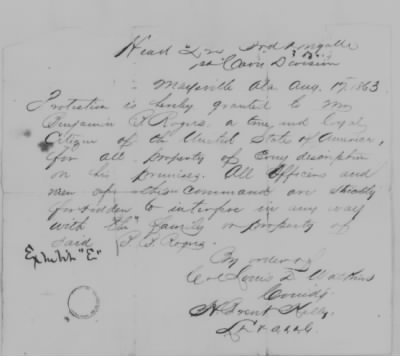 Head Qrs 3rd Brigade
1st Cavy Division
Maysville Ala Aug. 17. 1863
Protection is hereby granted to Mr
Benjamin P. Rogers, a true and loyal
Citizen of the United State of America,
for all property of Every description
on his premises. All Officers and
men of this Command are strictly
forbidden to interfere in any way
with the family or property of
said P. B Rogers.
Exhibit "E"
By order of
Col Louis D Watkins
Comidg.
H Brent Kelly
Lt & AAAG